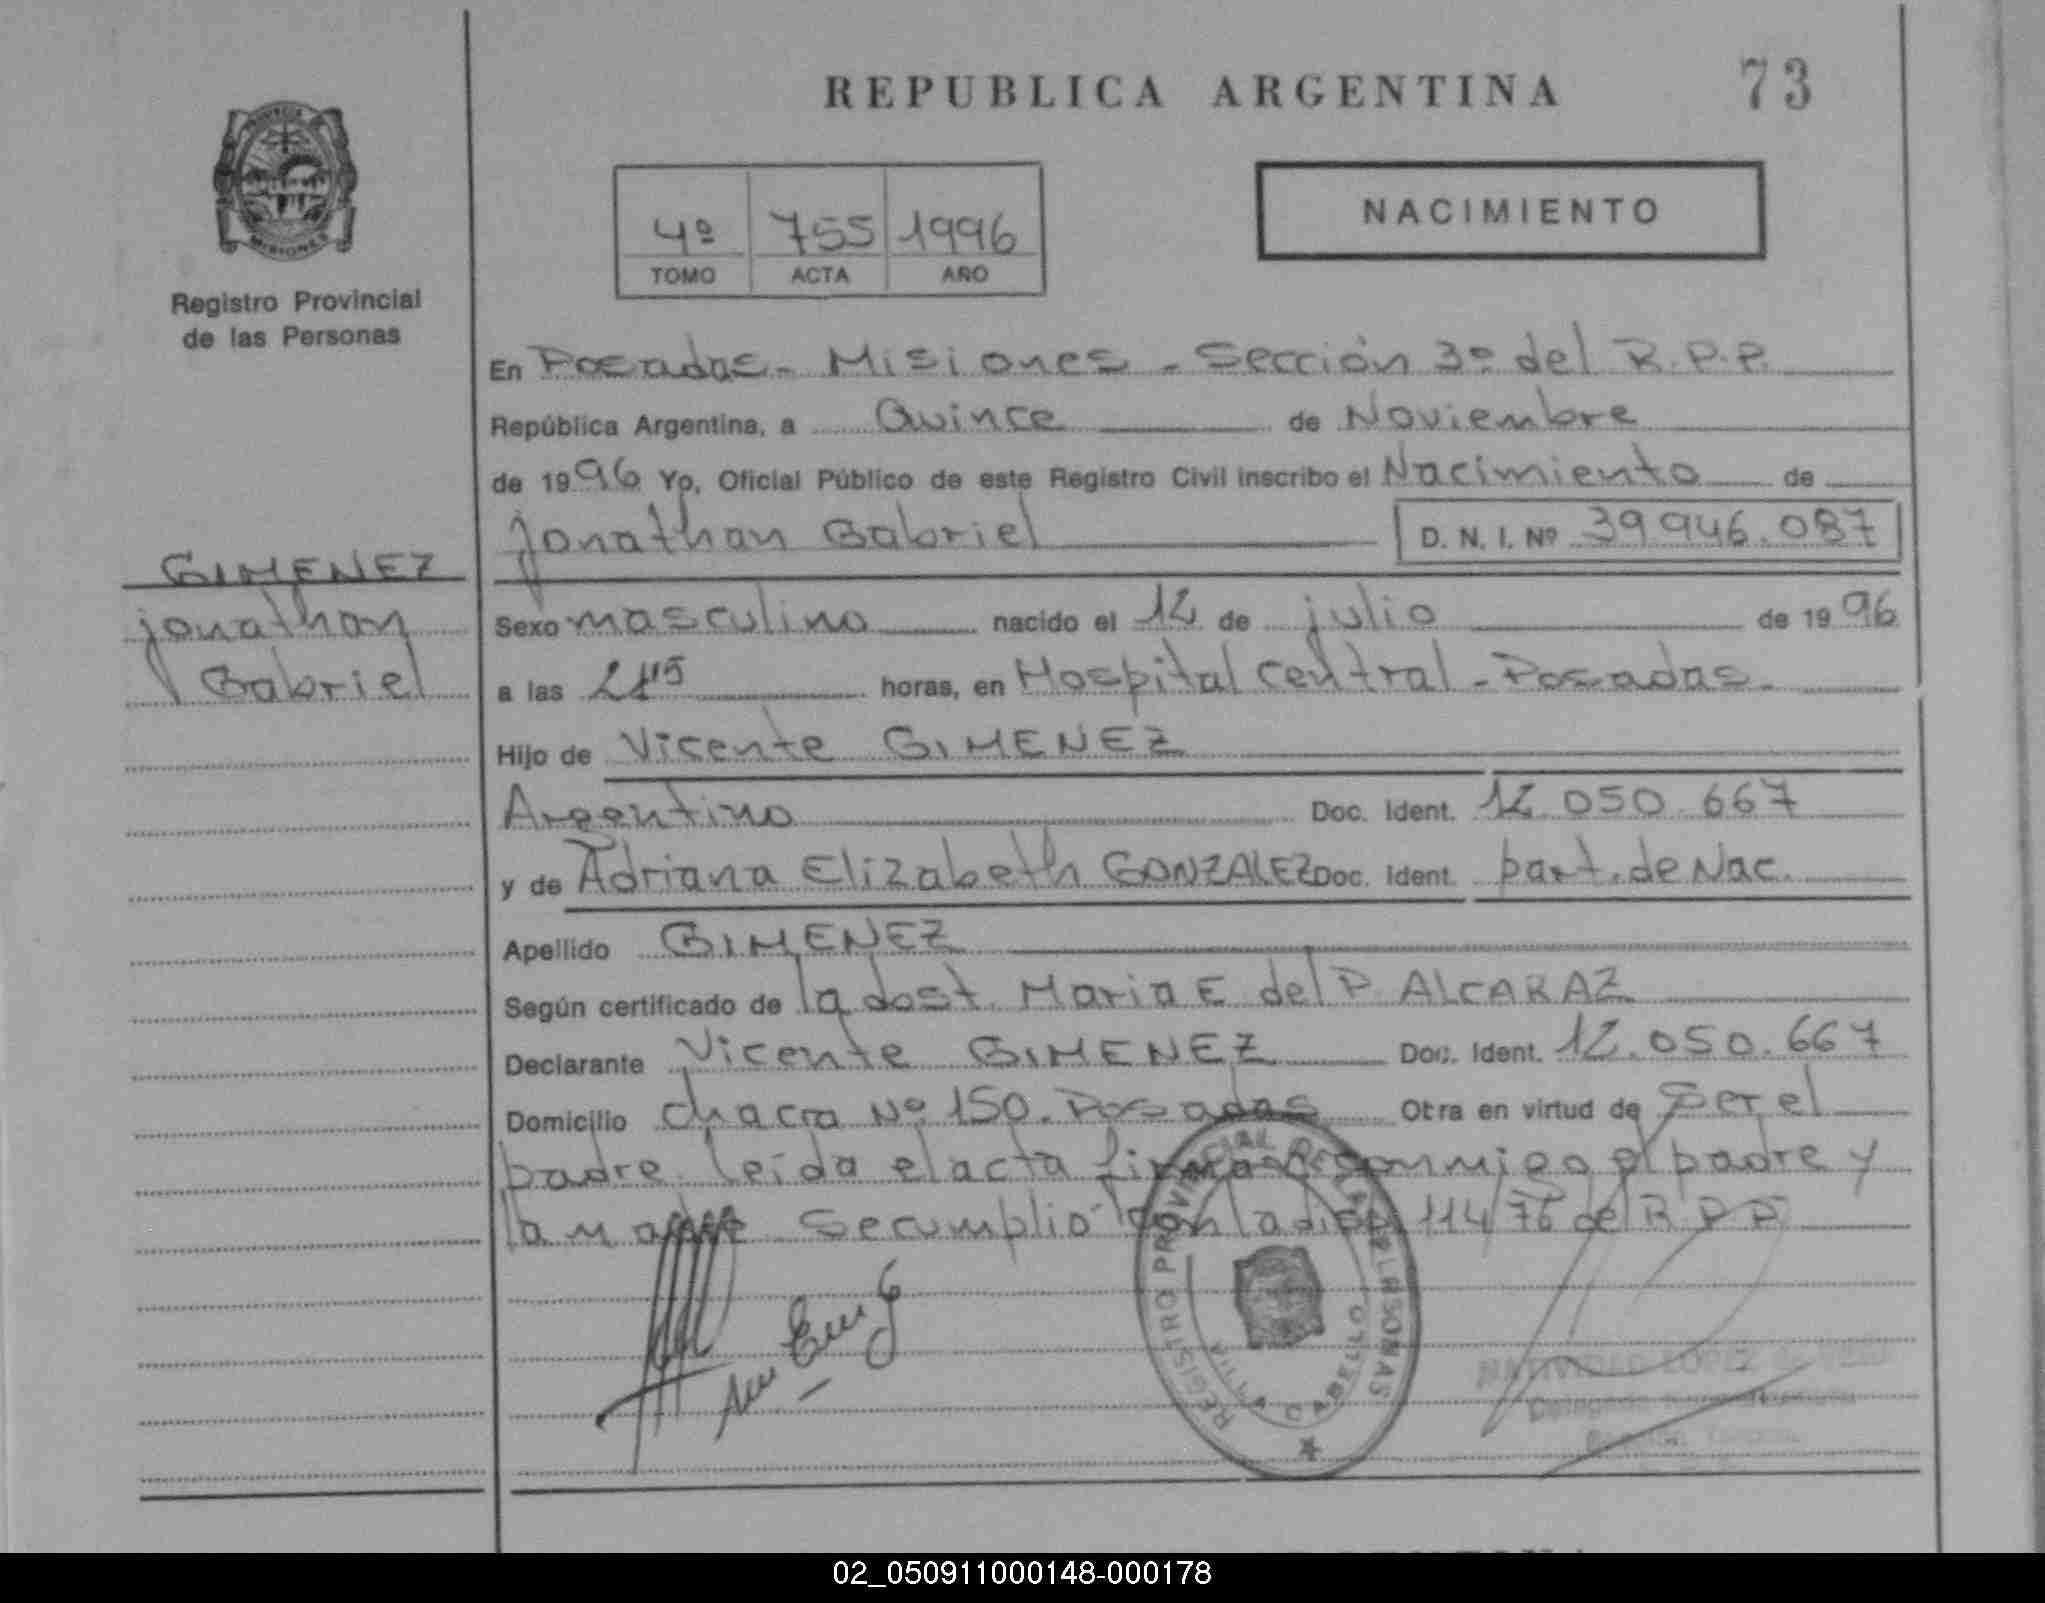 REPUBLICA ARGENTINA
73
PROVINCIA
MISIONES
Registro Provincial
de las Personas
4º 755 1996
TOMO ACTA AÑO
NACIMIENTO
En Posadas - Misiones - Sección 3º del R.P.P.
República Argentina, a Quince de Noviembre
de 1996 Yo, Oficial Público de este Registro Civil inscribo el Nacimiento de
Jonathan Gabriel D. N. I. Nº 39946.087
GIMENEZ
Jonathan
Gabriel
Sexo masculino nacido el 12 de julio de 1996
a las horas, en Hospital Central - Posadas.
Hijo de Vicente GIMENEZ
Argentino Doc. Ident. 12.050.667
y de Adriana Elizabeth GONZALEZ Doc. Ident. part. de Nac.
Apellido GIMENEZ
Según certificado de la obst. Maria E del P. ALCARAZ
Declarante Vicente GIMENEZ Doc. Ident. 12.050.667
Domicilio chacra Nº 150. Posadas Otra en virtud de Ser el
padre. leída el acta firman conmigo el padre y
la madre Se cumplió con la disp. 114/76 del R.P.P.
REGISTRO PROVINCIAL DE LAS PERSONAS
VILLA CABELLO
02_050911000148-000178